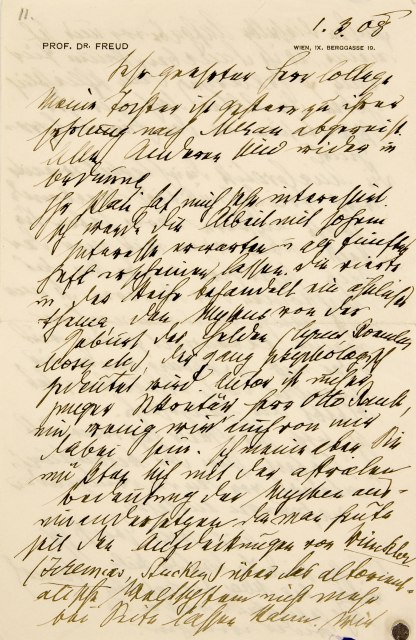 11.
1.3.08
PROF. DR. FREUD
WIEN, IX. BERGGASSE 19.
Sehr geehrter Herr College
Meine Tochter ist gestern zu ihrer
Erholung nach Meran abgereist.
Alle Anderen sind wieder in
Ordnung.
Ihr Plan hat mich sehr interessirt.
Ich werde die Arbeit mit hohem
Interesse erwarten u als fünftes
Heft erscheinen lassen. Die vierte
in der Reihe behandelt ein ähnliches
Thema, den Mythus von der
Geburt des Helden (Cyrus Romulus
Moses etc), der ganz psychologisch
gedeutet wird. Autor ist unser
junger Sekretär Herr Otto Rank
ein wenig wird auch von mir
dabei sein. Ich meine aber Sie
sich mit der astralen
Bedeutung der Mythen aus-
einandersetzen, die man heute
seit den Aufdeckungen von Winckler
(Jeremias, Stucken) über das altorient-
alische Weltsystem nicht mehr
bei Seite lassen kann.